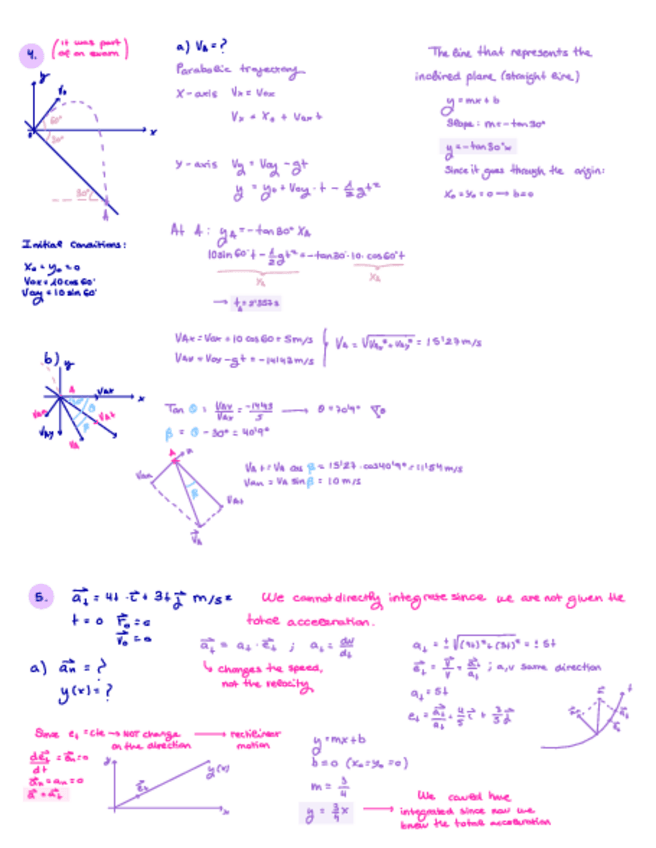 4.
(it was part
of an exam)
a) VA = ?
Parabolic trajectory
X-axis Vx = Vox
Vx = Xo + Vox t
y-axis Vy = Voy - gt
y = yo + Voy · t - 1/2 gt²
The line that represents the
inclined plane (straight line)
y = mx + b
Slope: m = -tan30°
y = -tan30°x
Since it goes through the origin:
Xo = Yo = 0 → b=0
y
Vo
60°
30°
x
30°
A
Initial conditions:
Xo = yo = 0
Vox = 10 cos 60°
Voy = 10 sin 60°
At A: yA = -tan 30° XA
10 sin 60° t - 1/2 gt² = -tan30° · 10 · cos60° t
YA
XA
→ tA = 2'357s
VAx = Vox = 10 cos 60 = 5m/s
VAy = Voy - gt = -14'43 m/s
VA = √(VAx² + VAy²) = 15'27 m/s
b)
y
A
VAx
x
θ
β
VAn
VAt
VAy
VA
Tan θ = VAy/VAx = -14'43/5 → θ = 70'9°
β = θ - 30° = 40'9°
VAt = VA cos β = 15'27 · cos40'9° = 11'54 m/s
VAn = VA sin β = 10 m/s
A
VAn
β
VAt
VA
5. at = 4t · i + 3t j m/s²
t = 0 ro = 0
vo = 0
a) an = ?
y(x) = ?
We cannot directly integrate since we are not given the
total acceleration.
at = at · et ; at = dv/dt
↳ changes the speed,
not the velocity
at = ±√((4t)² + (3t)²) = ± 5t
et = v/v = at/at ; a, v same direction
at = 5t
et = at/at = 4/5 i + 3/5 j
Since et = cte → NOT change → rectilinear
on the direction motion
det/dt = an = 0
an = an = 0
a = at
y
et
y(x)
x
y = mx + b
b = 0 (xo = yo = 0)
m = 3/4
y = 3/4 x → We could have
integrated since now we
know the total acceleration